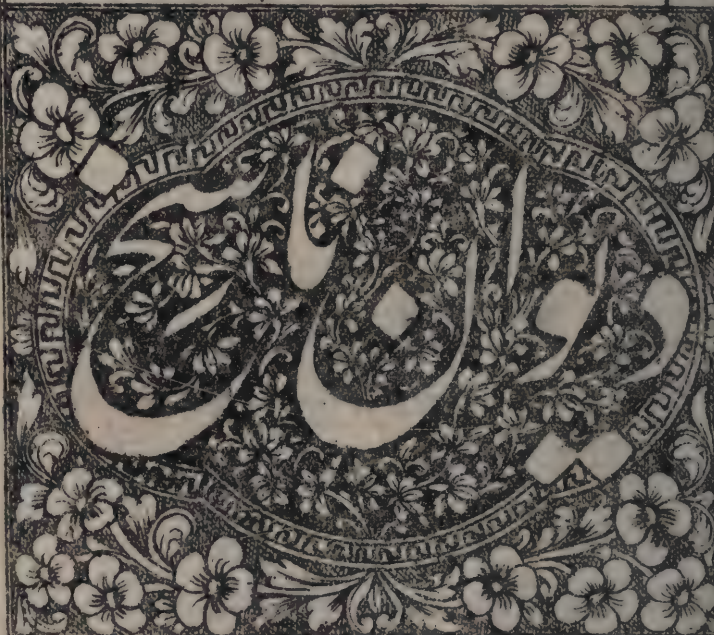 دیوان ناسخ